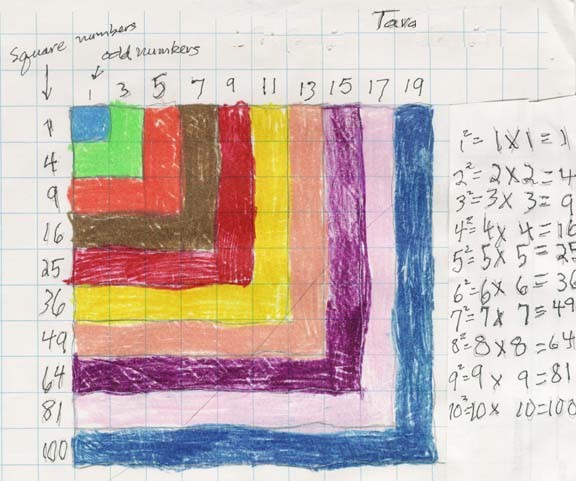 Tara
Square numbers
odd numbers
1 3 5 7 9 11 13 15 17 19
1
4
9
16
25
36
49
64
81
100
1²= 1X1=1
2²= 2X2=4
3²= 3X 3=9
4²= 4x 4=16
5²= 5x 5=25
6²=6x 6=36
7²=7x 7=49
8²=8x 8=64
9²=9x 9=81
10²=10x 10=100